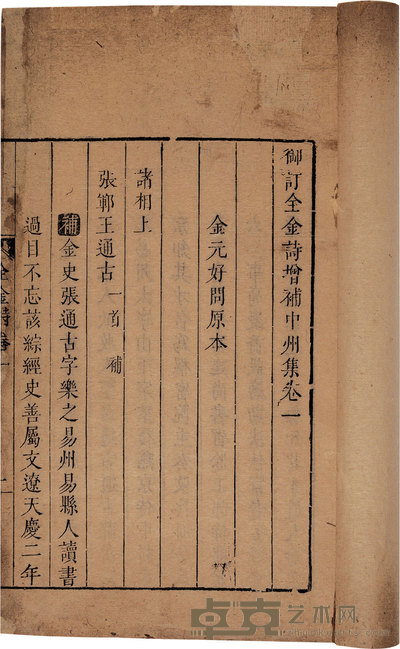 御訂全金詩增補中州集卷一
金元好問原本
諸相上
張鄆王通古一首補
補金史張通古字樂之易州易縣人讀書
過目不忘該綜經史善屬文遼天慶二年
全金詩卷一
卓克艺术网